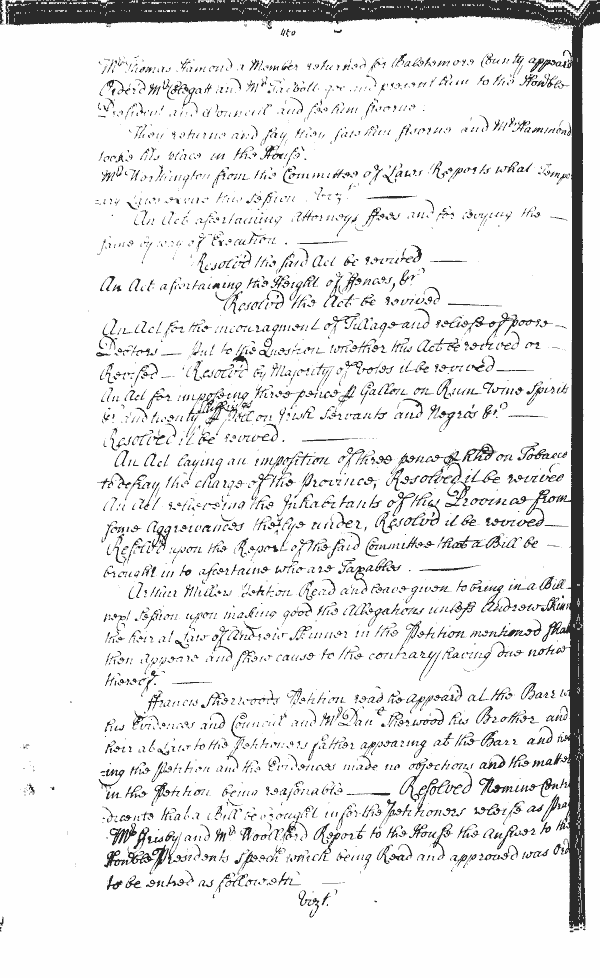 450
Mr Thomas Hamond a Member returned for Baletemore County appeard
Orderd Mr Colegatt and Mr goe and present him to the Honble
President and Councill and see him sworne.
They returne and say they saw him sworne and Mr Hammond
tooke his place in the House.
Mr Worthington from the Committee of Laws Reports what Tempo
=ary Laws expire this Session Vizt.
An Act ascertaining Attorneys ffees and for levying the
same by way of Execution.
Resolvd the said Act be revived
An Act ascertaining the Height of ffences, &c
Resolvd the Act be revived
An Act for the incouragment of Tillage and reliefe of poore
Debtors — Put to the Question whether this Act be revived or
Revised — Resolvd by Majority of Votes it be revived
An Act for imposing three pence ⅌ Gallon on Rum Wine Spirits
&c and twenty shillings ⅌ Poll on Irish Servants and Negro's &c
Resolved it be revived.
An Act laying an imposition of three pence ⅌ hhd on Tobacco
to defray the charge of the Province, Resolved it be revived
An Act relieveing the Inhabitants of this Province from
some Aggrevances they lye under, Resolvd it be revived
Resolvd upon the Report of the said Committee that a Bill be
brought in to ascertaine who are Taxables.
Arthur Millers Petition Read and leave given to bring in a Bill
next Session upon making good the Allegations unless Andrew Skinn
the heir at Law of Andrew Skinner in the Petition mentioned shall
then appeare and shew cause to the contrary haveing due notice
thereof.
Francis Sherwoods Petition read he appeard at the Barr w
his Evidences and Councill and Mr Danl Sherwood his Brother and
heir at Law to the Petitioners father appearing at the Barr and hea
=ing the Petition and the Evidences made no objections and the matter
in the Petition being reasonable — Resolved Nemine Contra
dicente that a Bill be brought in for the Petitioners releise as pray
Mr Frisby and Mr Woolford Report to the House the Answer to the
Honble Presidents speech which being Read and approved was Ord
to be entred as followeth
Vizt.